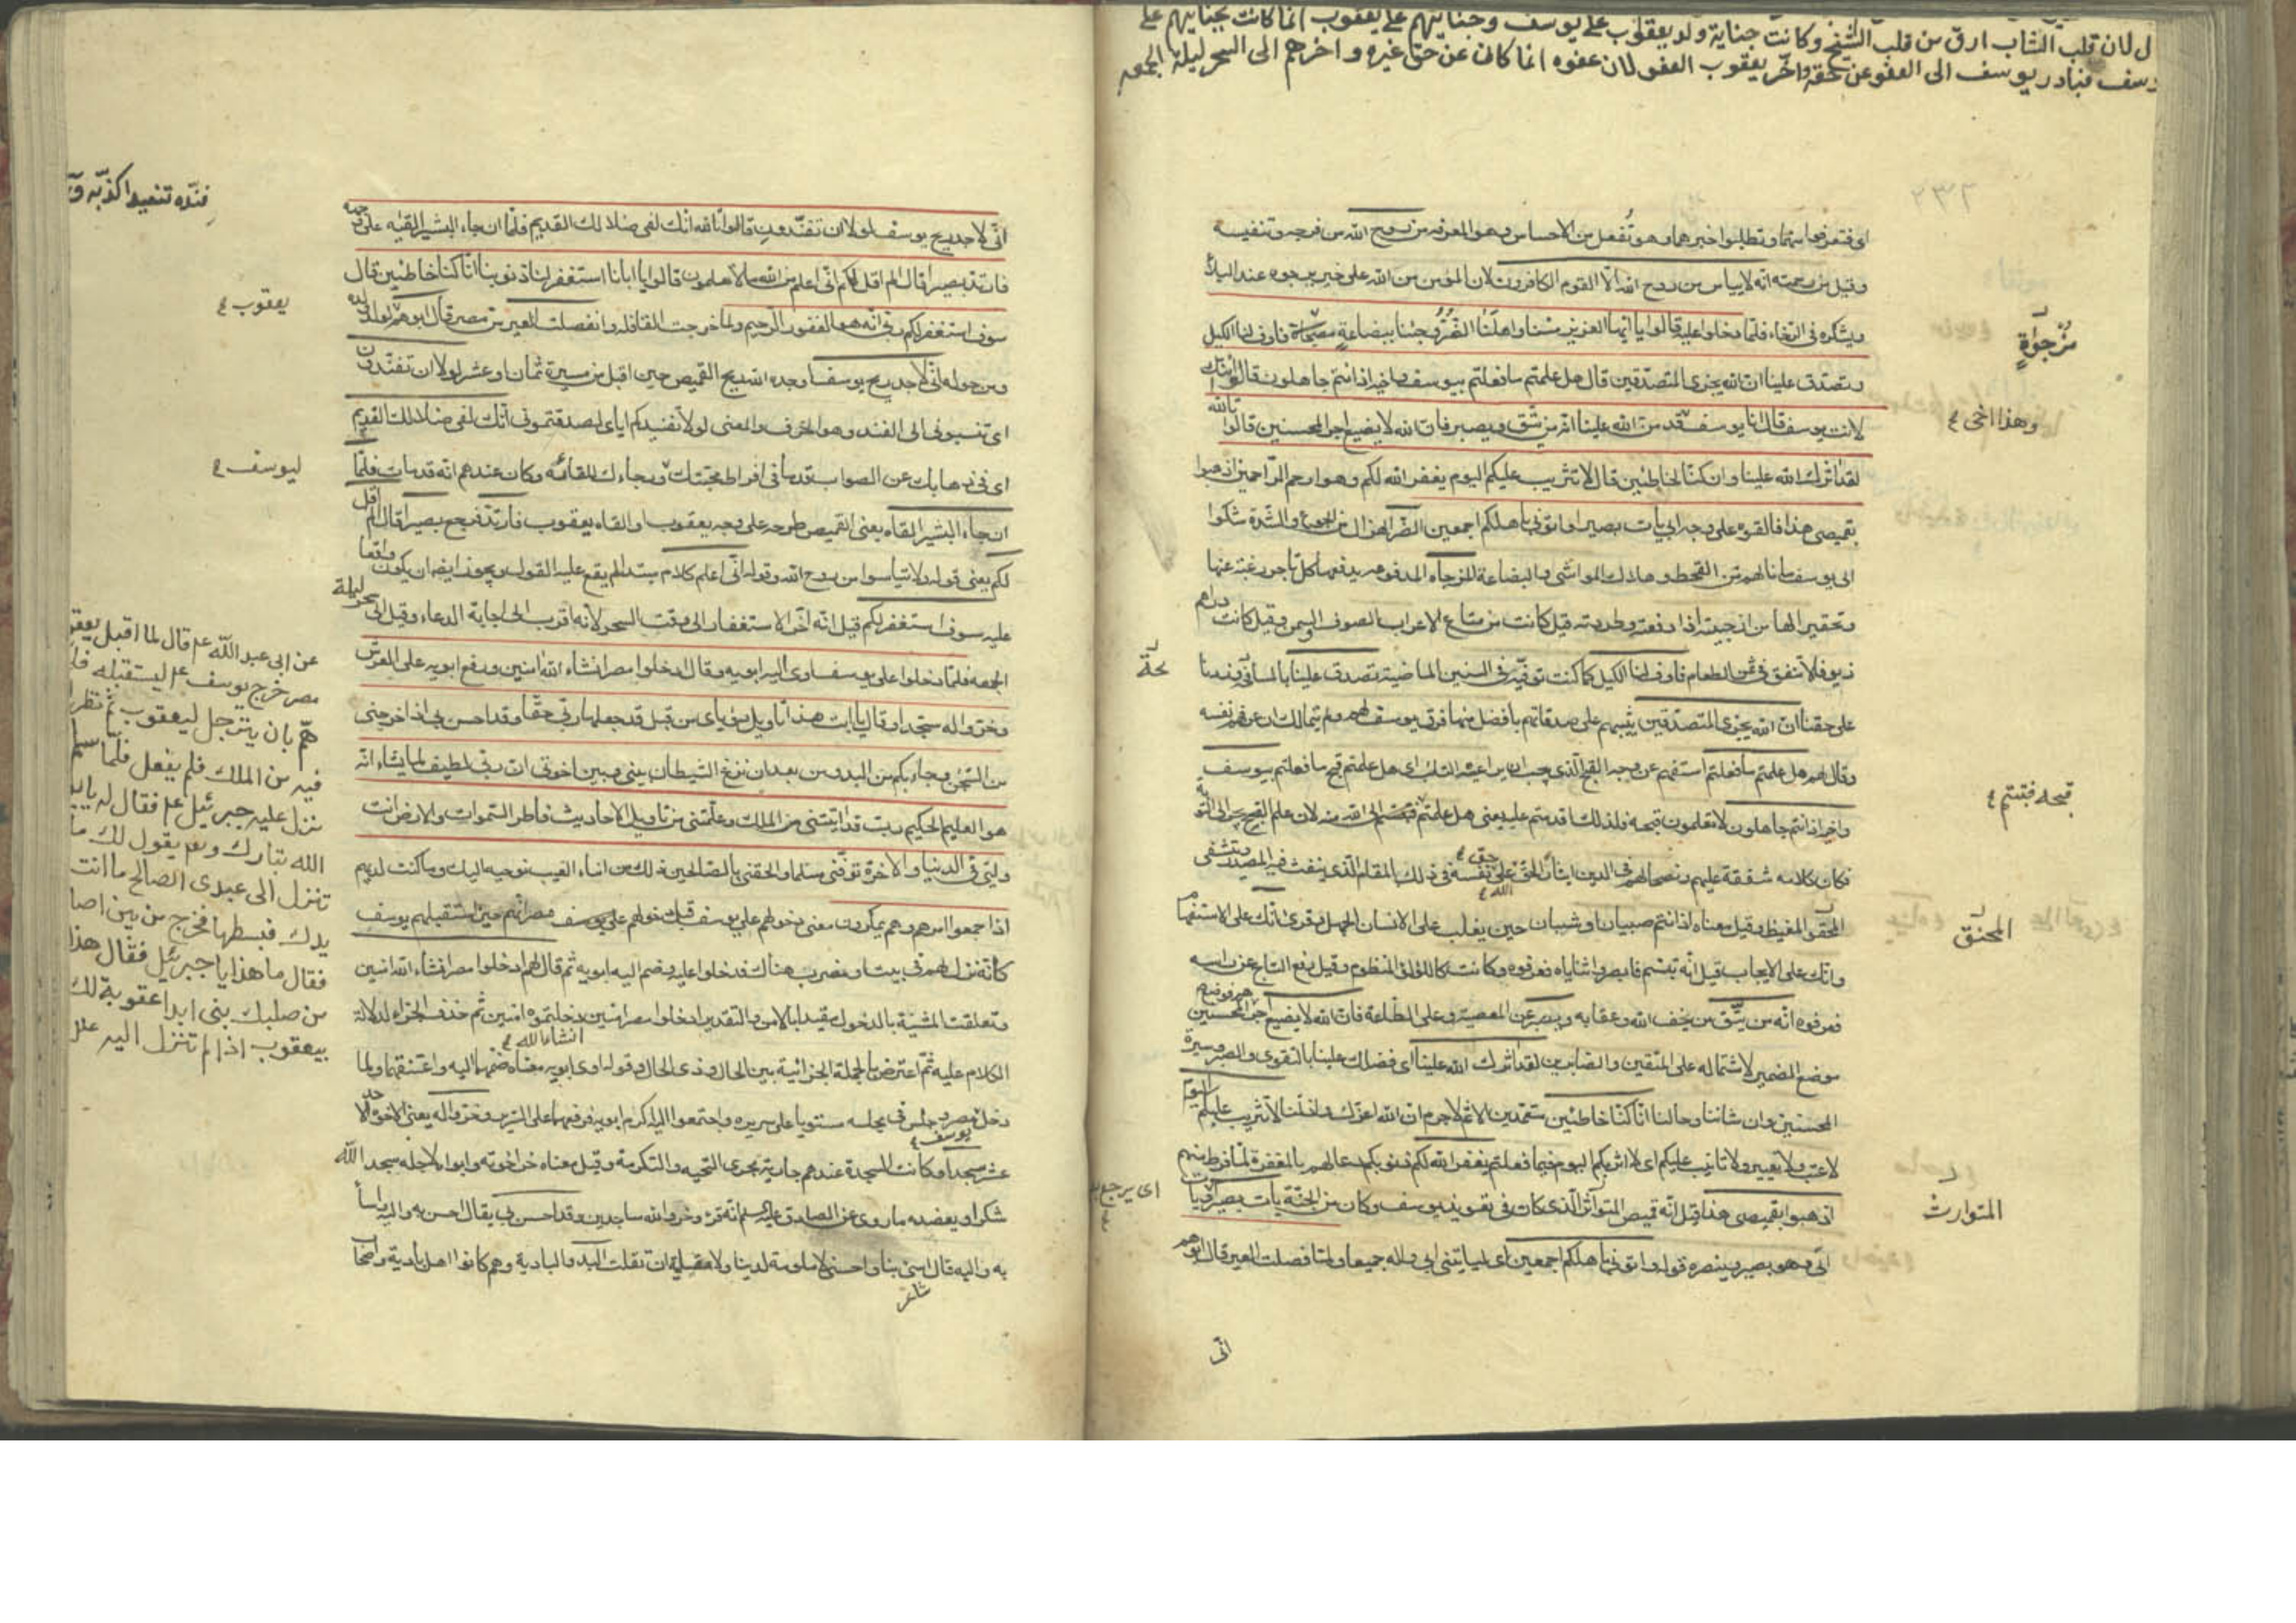 ل لان قلب الشاب ارق من قلب الشيخ وكانت جناية ولد يعقوب على يوسف وجنايتهم على يعقوب انما كانت بجنايتهم على
وسف فبادر يوسف الى العفو عن حقه واخر يعقوب العفو لان عفوه انما كان عن حق غيره واخرهم الى السحر ليلة الجمعه
٢٣٢
اى فتعرفوا منهما وتطلبوا خبرهما وهو تفعل من الاحساس وهو المعرفه من روح الله من فرجه وتنفيسه
وقيل من رحمته انه لا يياس من روح الله الا القوم الكافرون لان المؤمن من الله على خير يرجوه عند البلاء
ويشكره فى الرخاء فلما دخلوا عليه قالوا يا ايها العزيز مسنا واهلنا الضر وجئنا ببضاعة مزجاة فاوف لنا الكيل
وتصدق علينا ان الله يجزى المتصدقين قال هل علمتم ما فعلتم بيوسف واخيه اذ انتم جاهلون قالوا ائنك
لانت يوسف قال انا يوسف قد من الله علينا انه من يتق ويصبر فان الله لا يضيع اجر المحسنين قالوا تالله
لقد اثرك الله علينا وان كنا لخاطئين قال لا تثريب عليكم اليوم يغفر الله لكم وهو ارحم الراحمين اذهبوا
بقميصى هذا فالقوه على وجه ابى يات بصيرا واتونى باهلكم اجمعين الضر الهزال من الجوع والشدة شكوا
الى يوسف ما نالهم من القحط وهلاك المواشى والبضاعة المزجاه المدفوعه يدفعها كل تاجر رغبة عنها
وتحقيرا لها من ازجيته اذا دفعته وطردته قيل كانت من متاع الاعراب الصوف والسمن وقيل كانت دراهم
زيوفا لا تنفق فى ثمن الطعام فاوف لنا الكيل كما كنت توفيه فى السنين الماضية وتصدق علينا بالمسامحة وزدنا
على حقنا ان الله يجزى المتصدقين يثيبهم على صدقاتهم بافضل منها فرق يوسف لهم ولم يتمالك ان عرفهم نفسه
وقال لهم هل علمتم ما فعلتم استفهم عن وجه القبح الذى يجب ان يراعيه التائب اى هل علمتم قبح ما فعلتم بيوسف
واخيه اذ انتم جاهلون لا تعلمون قبحه فلذلك اقدمتم عليه يعنى هل علمتم قبحه فتبتم الى الله منه لان علم القبح يجر الى التوبة
فكان كلامه شفقة عليهم ونصحا لهم فى الدين ايثارا لحق الله على حق نفسه فى ذلك المقام الذى ينفث فيه المصدور ويتشفى
المحنق المغيظ وقيل معناه اذ انتم صبيان او شبان حين يغلب على الانسان الجهل وقرئ ائنك على الاستفهام
وانك على الايجاب قيل انه تبسم فابصروا ثناياه فعرفوه وكانت كاللؤلؤ المنظوم وقيل رفع التاج عن راسه
فعرفوه انه من يتق من يخف الله وعقابه ويصبر عن المعصية وعلى الطاعة فان الله لا يضيع اجرهم فوضع المحسنين
موضع الضمير لاشتماله على المتقين والصابرين لقد اثرك الله علينا اى فضلك علينا بالتقوى والصبر وسيرة
المحسنين وان شاننا وحالنا انا كنا خاطئين متعمدين للاثم لا جرم ان الله اعزك واذلنا لا تثريب عليكم اليوم
لا عتب ولا تعيير ولا تانيب عليكم اى لا اثربكم اليوم فيما فعلتم يغفر الله لكم ذنوبكم دعا لهم بالمغفرة لما فرط منهم
اذهبوا بقميصى هذا قيل انه قميص المتوارث الذى كان فى تعويذ يوسف وكان من الجنة يات بصيرا
الى وهو بصير وينصره قوله واتونى باهلكم اجمعين اى لياتينى ابى واله جميعا ولما فصلت العير قال ابوهم
انى
مزجوة
وهذا اخى ع
محة
قبحه فتبتم ع
المحنق
المتوارث
انى لاجد ريح يوسف لولا ان تفندون قالوا تالله انك لفى ضلالك القديم فلما ان جاء البشير القيه على وجهه
فارتد بصيرا قال الم اقل لكم انى اعلم من الله ما لا تعلمون قالوا يا ابانا استغفر لنا ذنوبنا انا كنا خاطئين قال
سوف استغفر لكم ربى انه هو الغفور الرحيم ولما خرجت القافله وانفصلت العير من مصر قال ابوهم لولد ولده
ومن حوله انى لاجد ريح يوسف اوجده الله ريح القميص حين اقبل من مسيرة ثمان وعشر لولا ان تفندون
اى تنسبونى الى الفند وهو الخرف والمعنى لولا تفنيدكم اياى لصدقتمونى انك لفى ضلالك القديم
اى فى ذهابك عن الصواب قدما فى افراط محبتك ورجاءك للقائه وكان عندهم انه قد مات فلما
ان جاء البشير القاه يعنى القميص طرحه على وجه يعقوب او القاه يعقوب فارتد فرجع بصيرا قال الم اقل
لكم يعنى قوله ولا تياسوا من روح الله وقوله انى اعلم كلام مبتدا لم يقع عليه القول ويجوز ايضا ان يكون واقعا
عليه سوف استغفر لكم قيل انه اخر الاستغفار الى وقت السحر لانه اقرب الى اجابة الدعاء وقيل الى سحر ليلة
الجمعه فلما دخلوا على يوسف اوى اليه ابويه وقال ادخلوا مصر انشاء الله امنين ورفع ابويه على العرش
وخروا له سجدا وقال يا ابت هذا تاويل رؤياى من قبل قد جعلها ربى حقا وقد احسن بى اذ اخرجنى
من السجن وجاء بكم من البدو من بعد ان نزغ الشيطان بينى وبين اخوتى ان ربى لطيف لما يشاء انه
هو العليم الحكيم رب قد اتيتنى من الملك وعلمتنى من تاويل الاحاديث فاطر السموات والارض انت
وليى فى الدنيا والاخرة توفنى مسلما والحقنى بالصالحين ذلك من انباء الغيب نوحيه اليك وما كنت لديهم
اذ اجمعوا امرهم وهم يمكرون معنى دخولهم على يوسف قبل دخولهم مصر انهم حين استقبلهم يوسف
كانه نزل لهم فى بيت او مضرب هناك فدخلوا عليه وضم اليه ابويه ثم قال لهم ادخلوا مصر انشاء الله امنين
وتعلقت المشية بالدخول مقيدا بالامن والتقدير ادخلوا مصر امنين انشاء الله دخلتموه امنين ثم حذف الجزاء لدلالة
الكلام عليه ثم اعترض بالجملة الجزائية بين الحال وذى الحال وقوله اوى ابويه معناه ضمهما اليه واعتنقهما ولما
دخل مصر وجلس فى مجلسه مستويا على سريره واجتمعوا اليه اكرم ابويه فرفعهما على السرير وخروا له يعنى الاخوة الاحد
عشر سجدا وكانت السجدة عندهم جارية مجرى التحيه والتكرمة وقيل معناه خر اخوته وابواه لاجله سجدا لله
شكرا ويعضده ما روى عن الصادق عليه السلم انه قرء وخروا لله ساجدين وقد احسن بى يقال احسن به واليه واساء
به واليه قال اسيئى بنا واحسنى لا ملومة لدينا ولا مقلية ان تقلت البدو البادية وهم كانوا اهل بادية واصحاب
فنده تفنيدا كذبه
يعقوب ع
ليوسف ع
عن ابى عبد الله عم قال لما اقبل يعقو
مصر خرج يوسف عم ليستقبله فلـ
هم بان يترجل ليعقوب ثم نظر
فيه من الملك فلم يفعل فلما سلم
نزل عليه جبرئيل عم فقال له يا
الله تبارك وتعم يقول لك ما
تنزل الى عبدى الصالح ما انت
يدك فبسطها فخرج من بين اصا
فقال ما هذا يا جبرئيل فقال هذا
من صلبك بنى ابدا عقوبة لك
بيعقوب اذ لم تنزل اليه